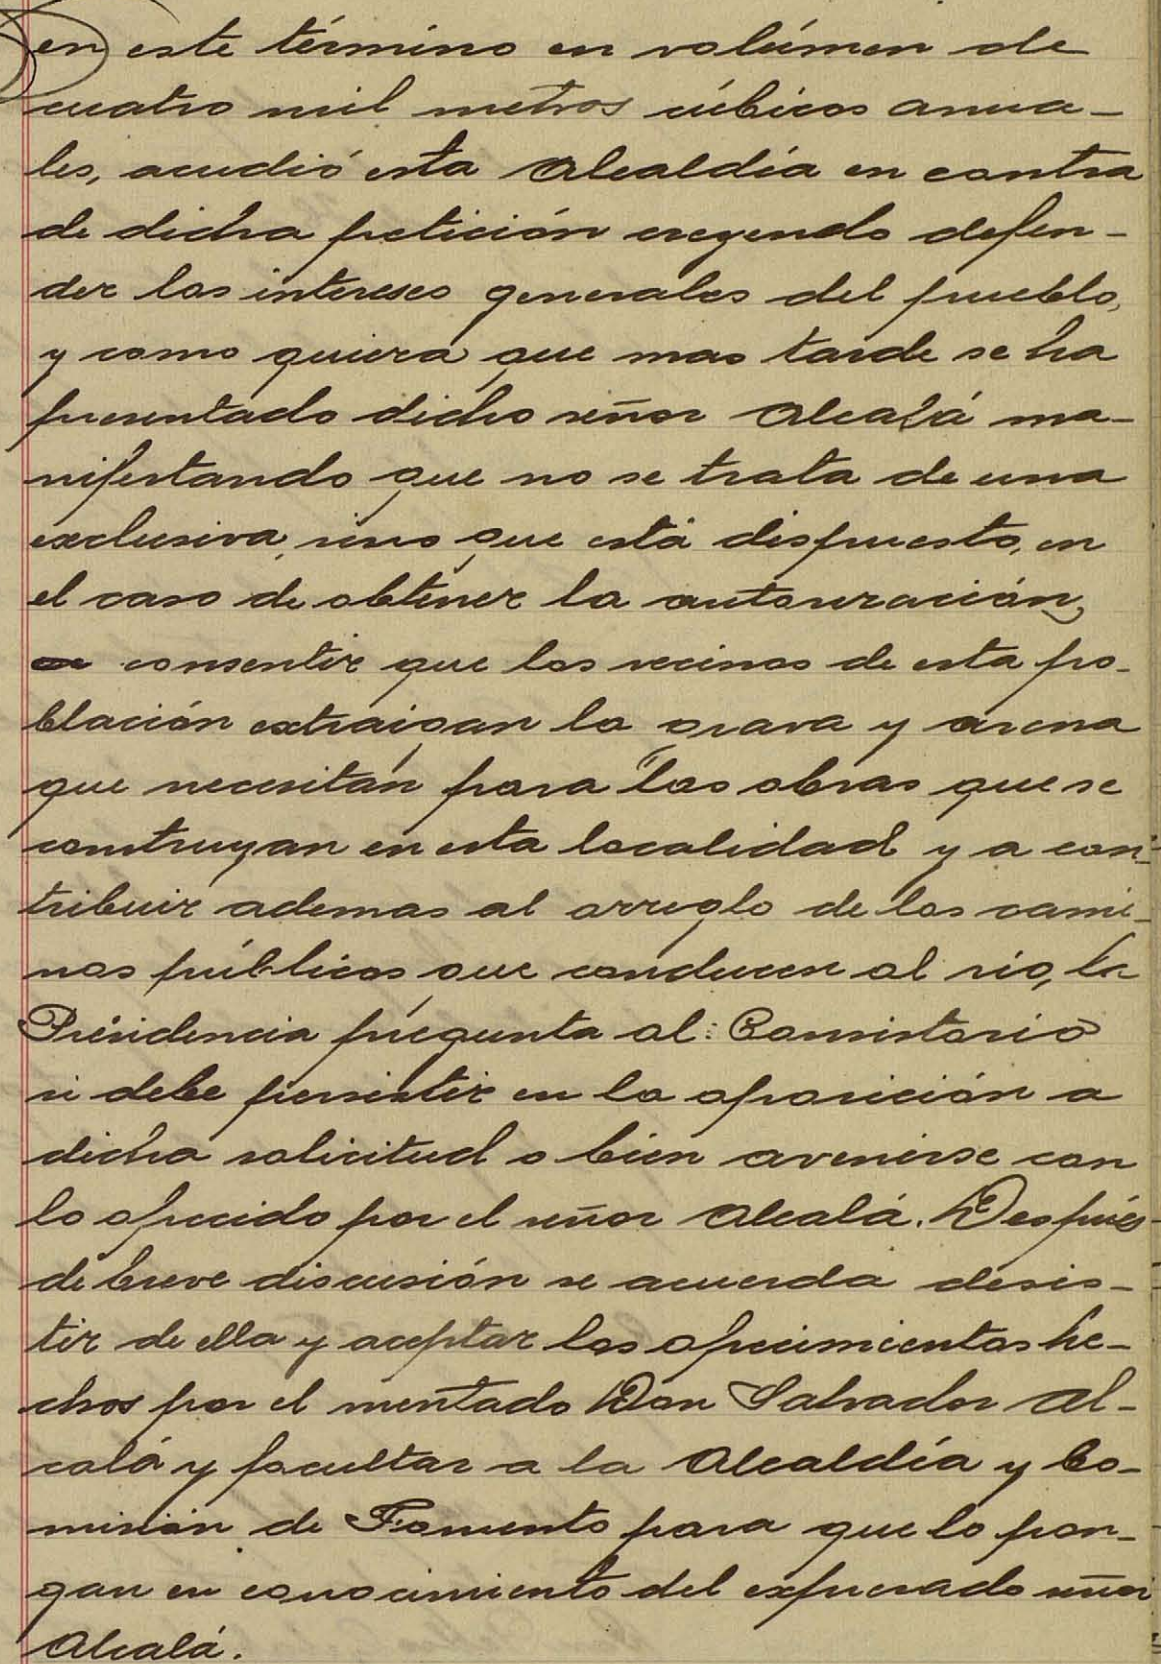 en este término en volúmen de
cuatro mil metros cúbicos anua-
les, acudió esta Alcaldía en contra
de dicha petición creyendo defen-
der los intereses generales del pueblo,
y como quiera que mas tarde se ha
presentado dicho señor Alcalá ma-
nifestando que no se trata de una
exclusiva, sino que está dispuesto, en
el caso de obtener la autorización,
consentir que los vecinos de esta po-
blación extraigan la grava y arena
que necesitan para las obras que se
construyan en esta localidad y a con-
tribuir ademas al arreglo de los cami-
nos públicos que conducen al rio, la
Presidencia pregunta al Consistorio
si debe persistir en la oposición a
dicha solicitud o bien avenirse con
lo ofrecido por el señor Alcalá. Después
de breve discusión se acuerda desis-
tir de ella y aceptar los ofrecimientos he-
chos por el mentado Don Salvador Al-
calá y facultar a la Alcaldía y Co-
misión de Fomento para que lo pon-
gan en conocimiento del expresado señor
Alcalá.